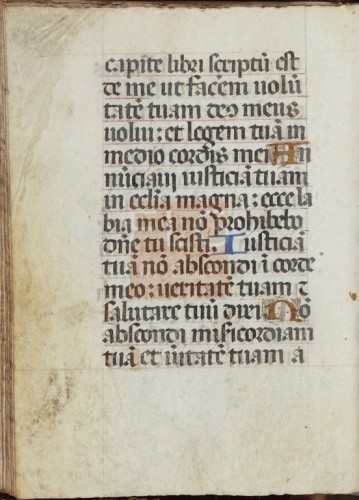 capite libri scriptū est
de me ut facērem uolū
tatē tuam deꝰ meus
uolui: et legem tuā in
medio cordis mei An
nūciaui iusticiā tuam
in ecl̄ia magna: ecce la
bia mea nō prohibebo
dn̄e tu scisti. Iusticiā
tuā nō abscondi ī corde
meo: ueritatē tuam ⁊
salutare tuū dixi Nō
abscondi mis̄icordiam
tuā et ūitatē tuam a